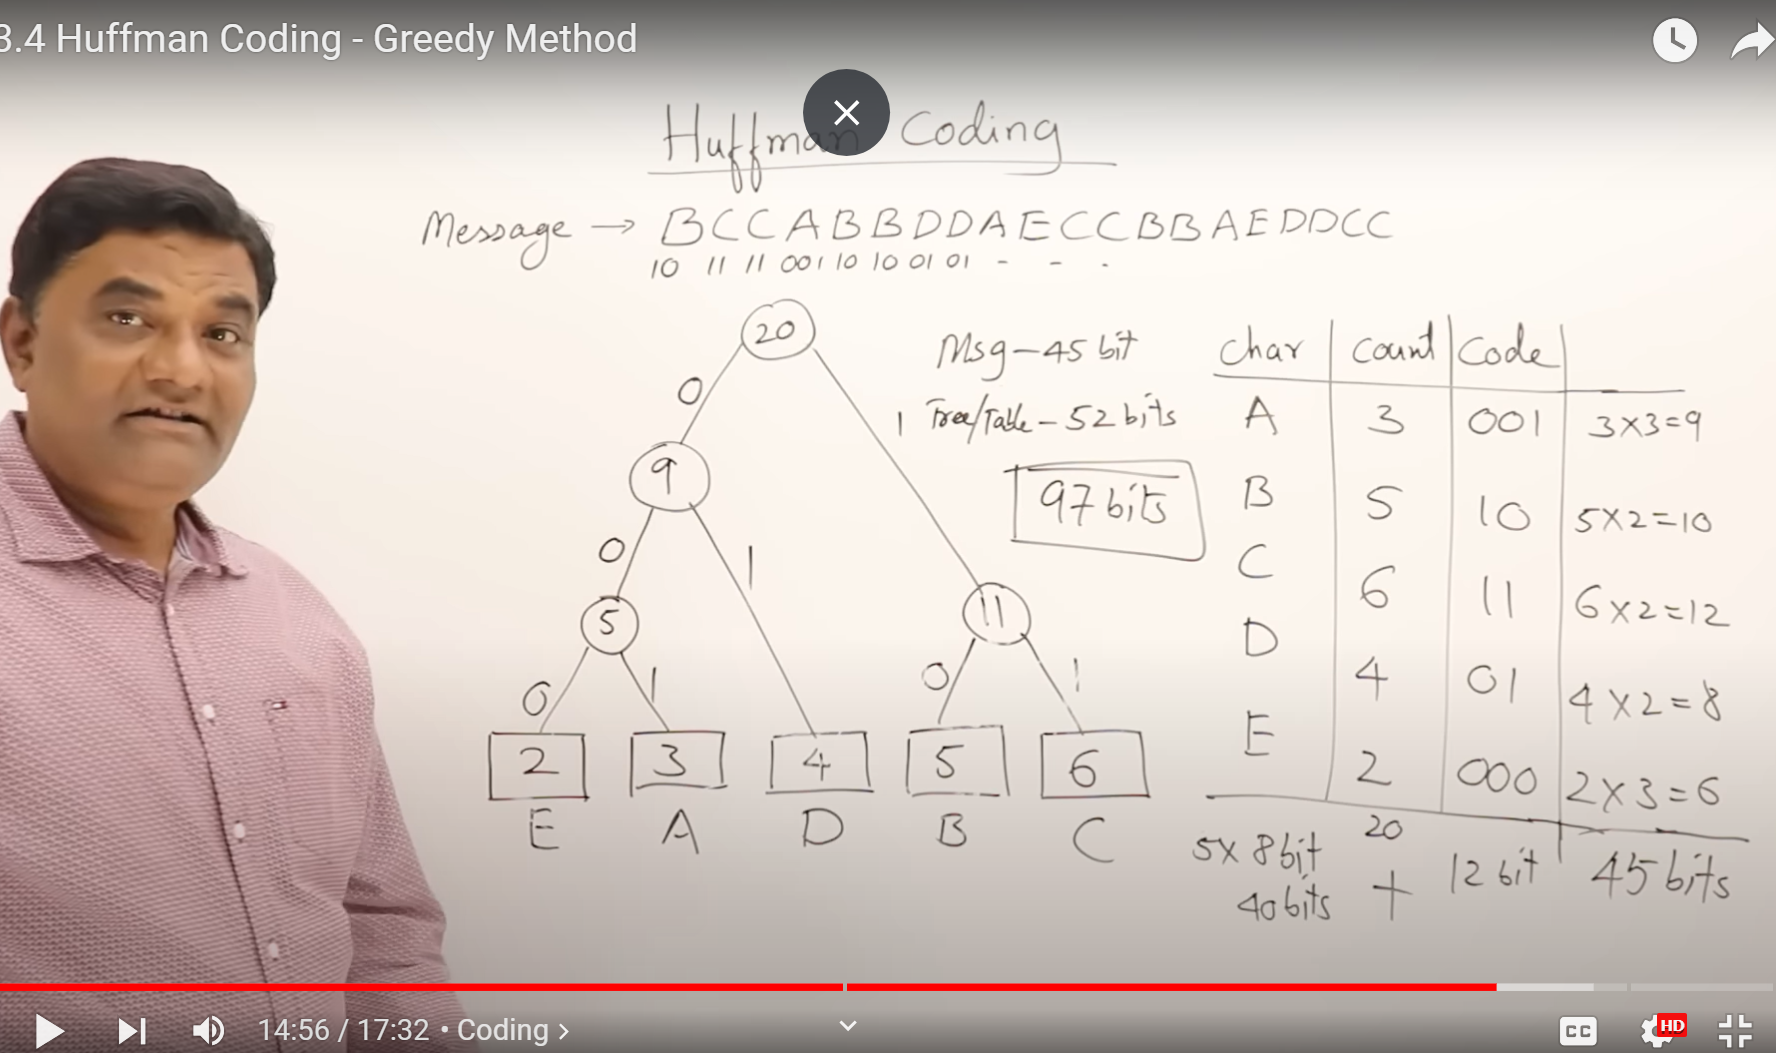 3.4 Huffman Coding - Greedy Method
Huffman Coding
Message → BCCABBDDAECCBBAEDDCC
10 11 11 001 10 10 01 01 - - .
20
0
1
9
0
1
5
11
0
1
0
1
2
3
4
5
6
E
A
D
B
C
Msg - 45 bit
Tree/Table - 52 bits
97 bits
char count code
A 3 001 3x3=9
B 5 10 5x2=10
C 6 11 6x2=12
D 4 01 4x2=8
E 2 000 2x3=6
20
5x 8bit
40 bits + 12 bit 45 bits
14:56 / 17:32 • Coding >
CC
HD